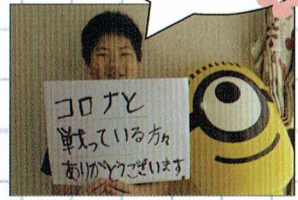 コロナと
戦っている方々
ありがとうございます。